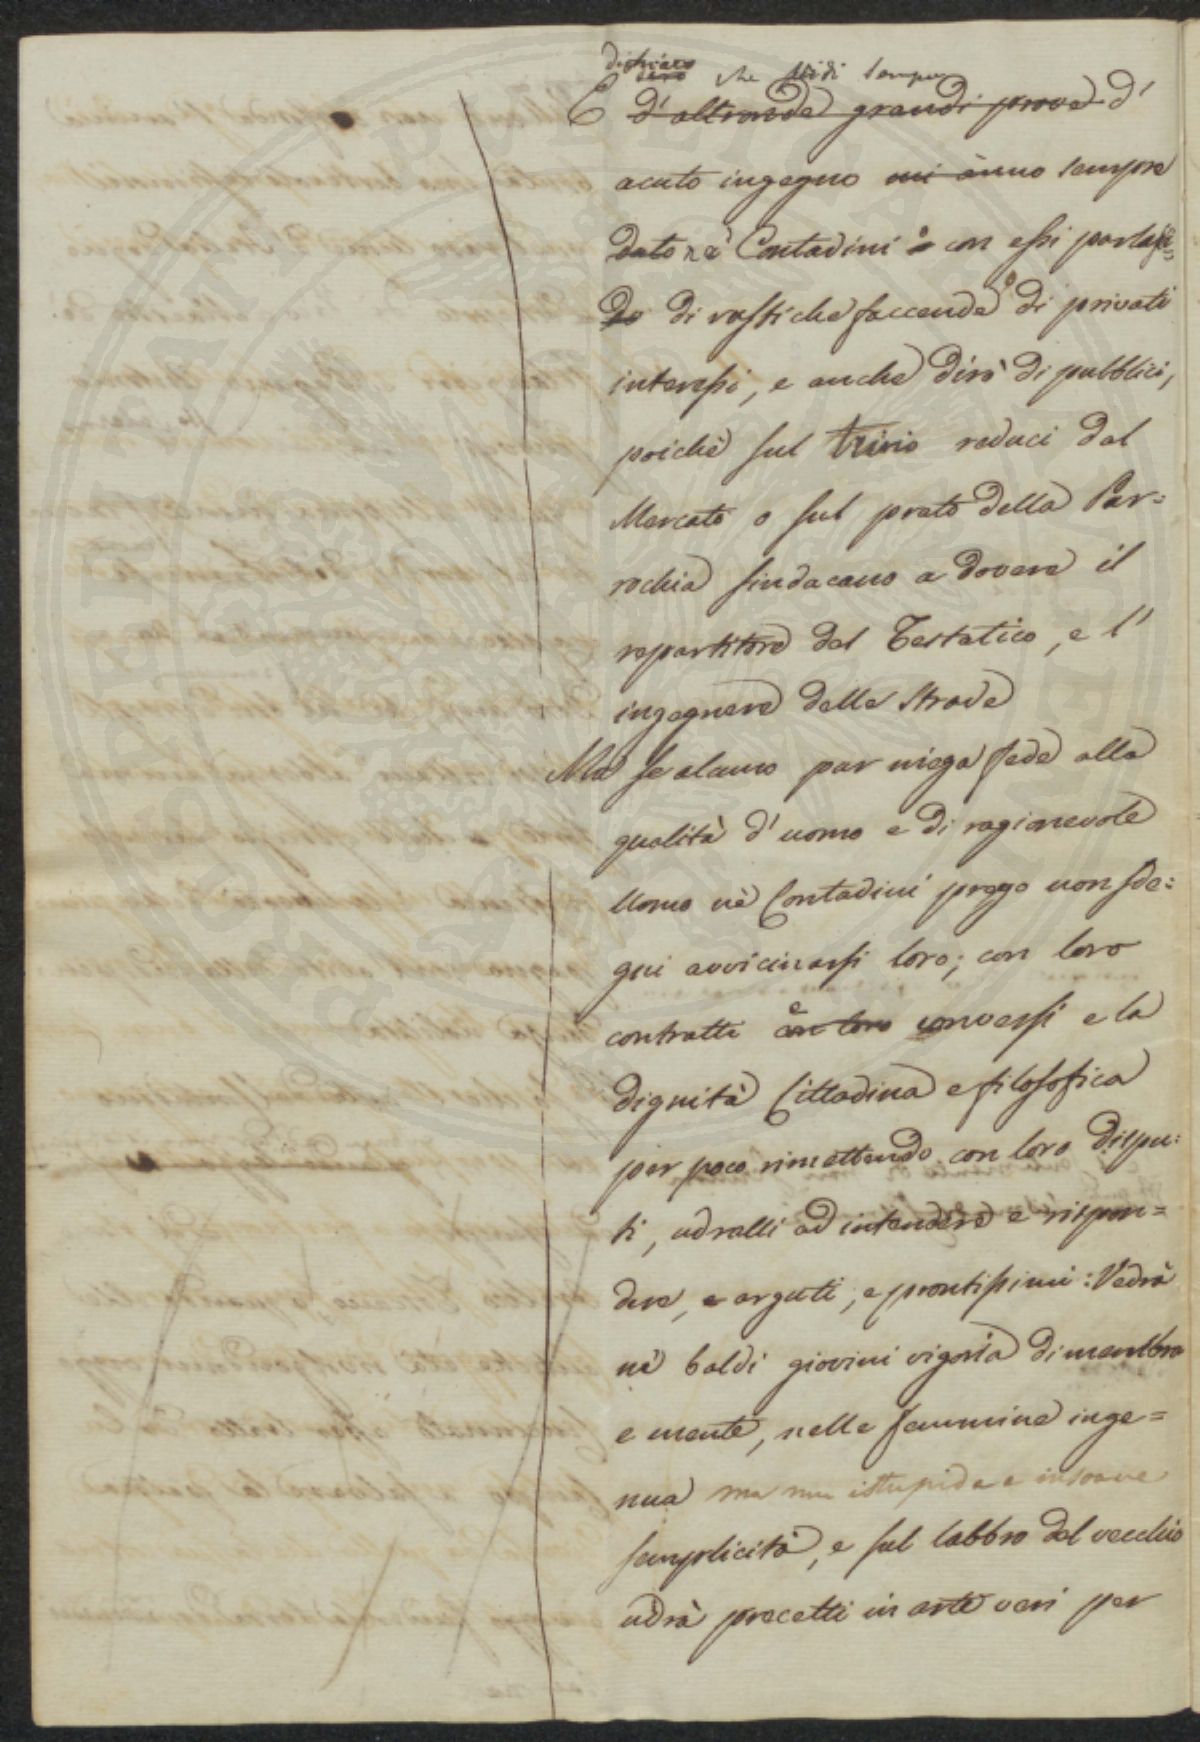 dichiaro che vidi sempre
E d'altronde grandi prove d'
acuto ingegno mi ànno sempre
dato ne' Contadini o con essi parlassi
do di rustiche faccende o di privati
interessi, e anche dirò di pubblici,
poiché sul trivio reduci dal
Mercato o sul prato della Par=
rochia sindacano a dovere il
repartitore del Testatico, e l'
ingegnere delle strade
Ma se alcuno par niega fede alla
qualità d'uomo e di ragionevole
Uomo ne' Contadini prego non sde=
gni avvicinarsi loro; con loro
contratti e con loro conversi e la
dignità Cittadina e filosofica
per poco rimettendo con loro dispu=
ti, udralli ad intendere e rispon=
dere, e arguti, e prontissimi: Vedrà
ne' baldi giovini vigoria di membra
e mente, nelle femmine inge=
nua ma non istupida e insoave
semplicità, e sul labbro del vecchio
udrà precetti in arte veri per